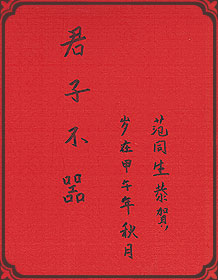 君子不器
范同生恭賀,
岁在甲午年秋月